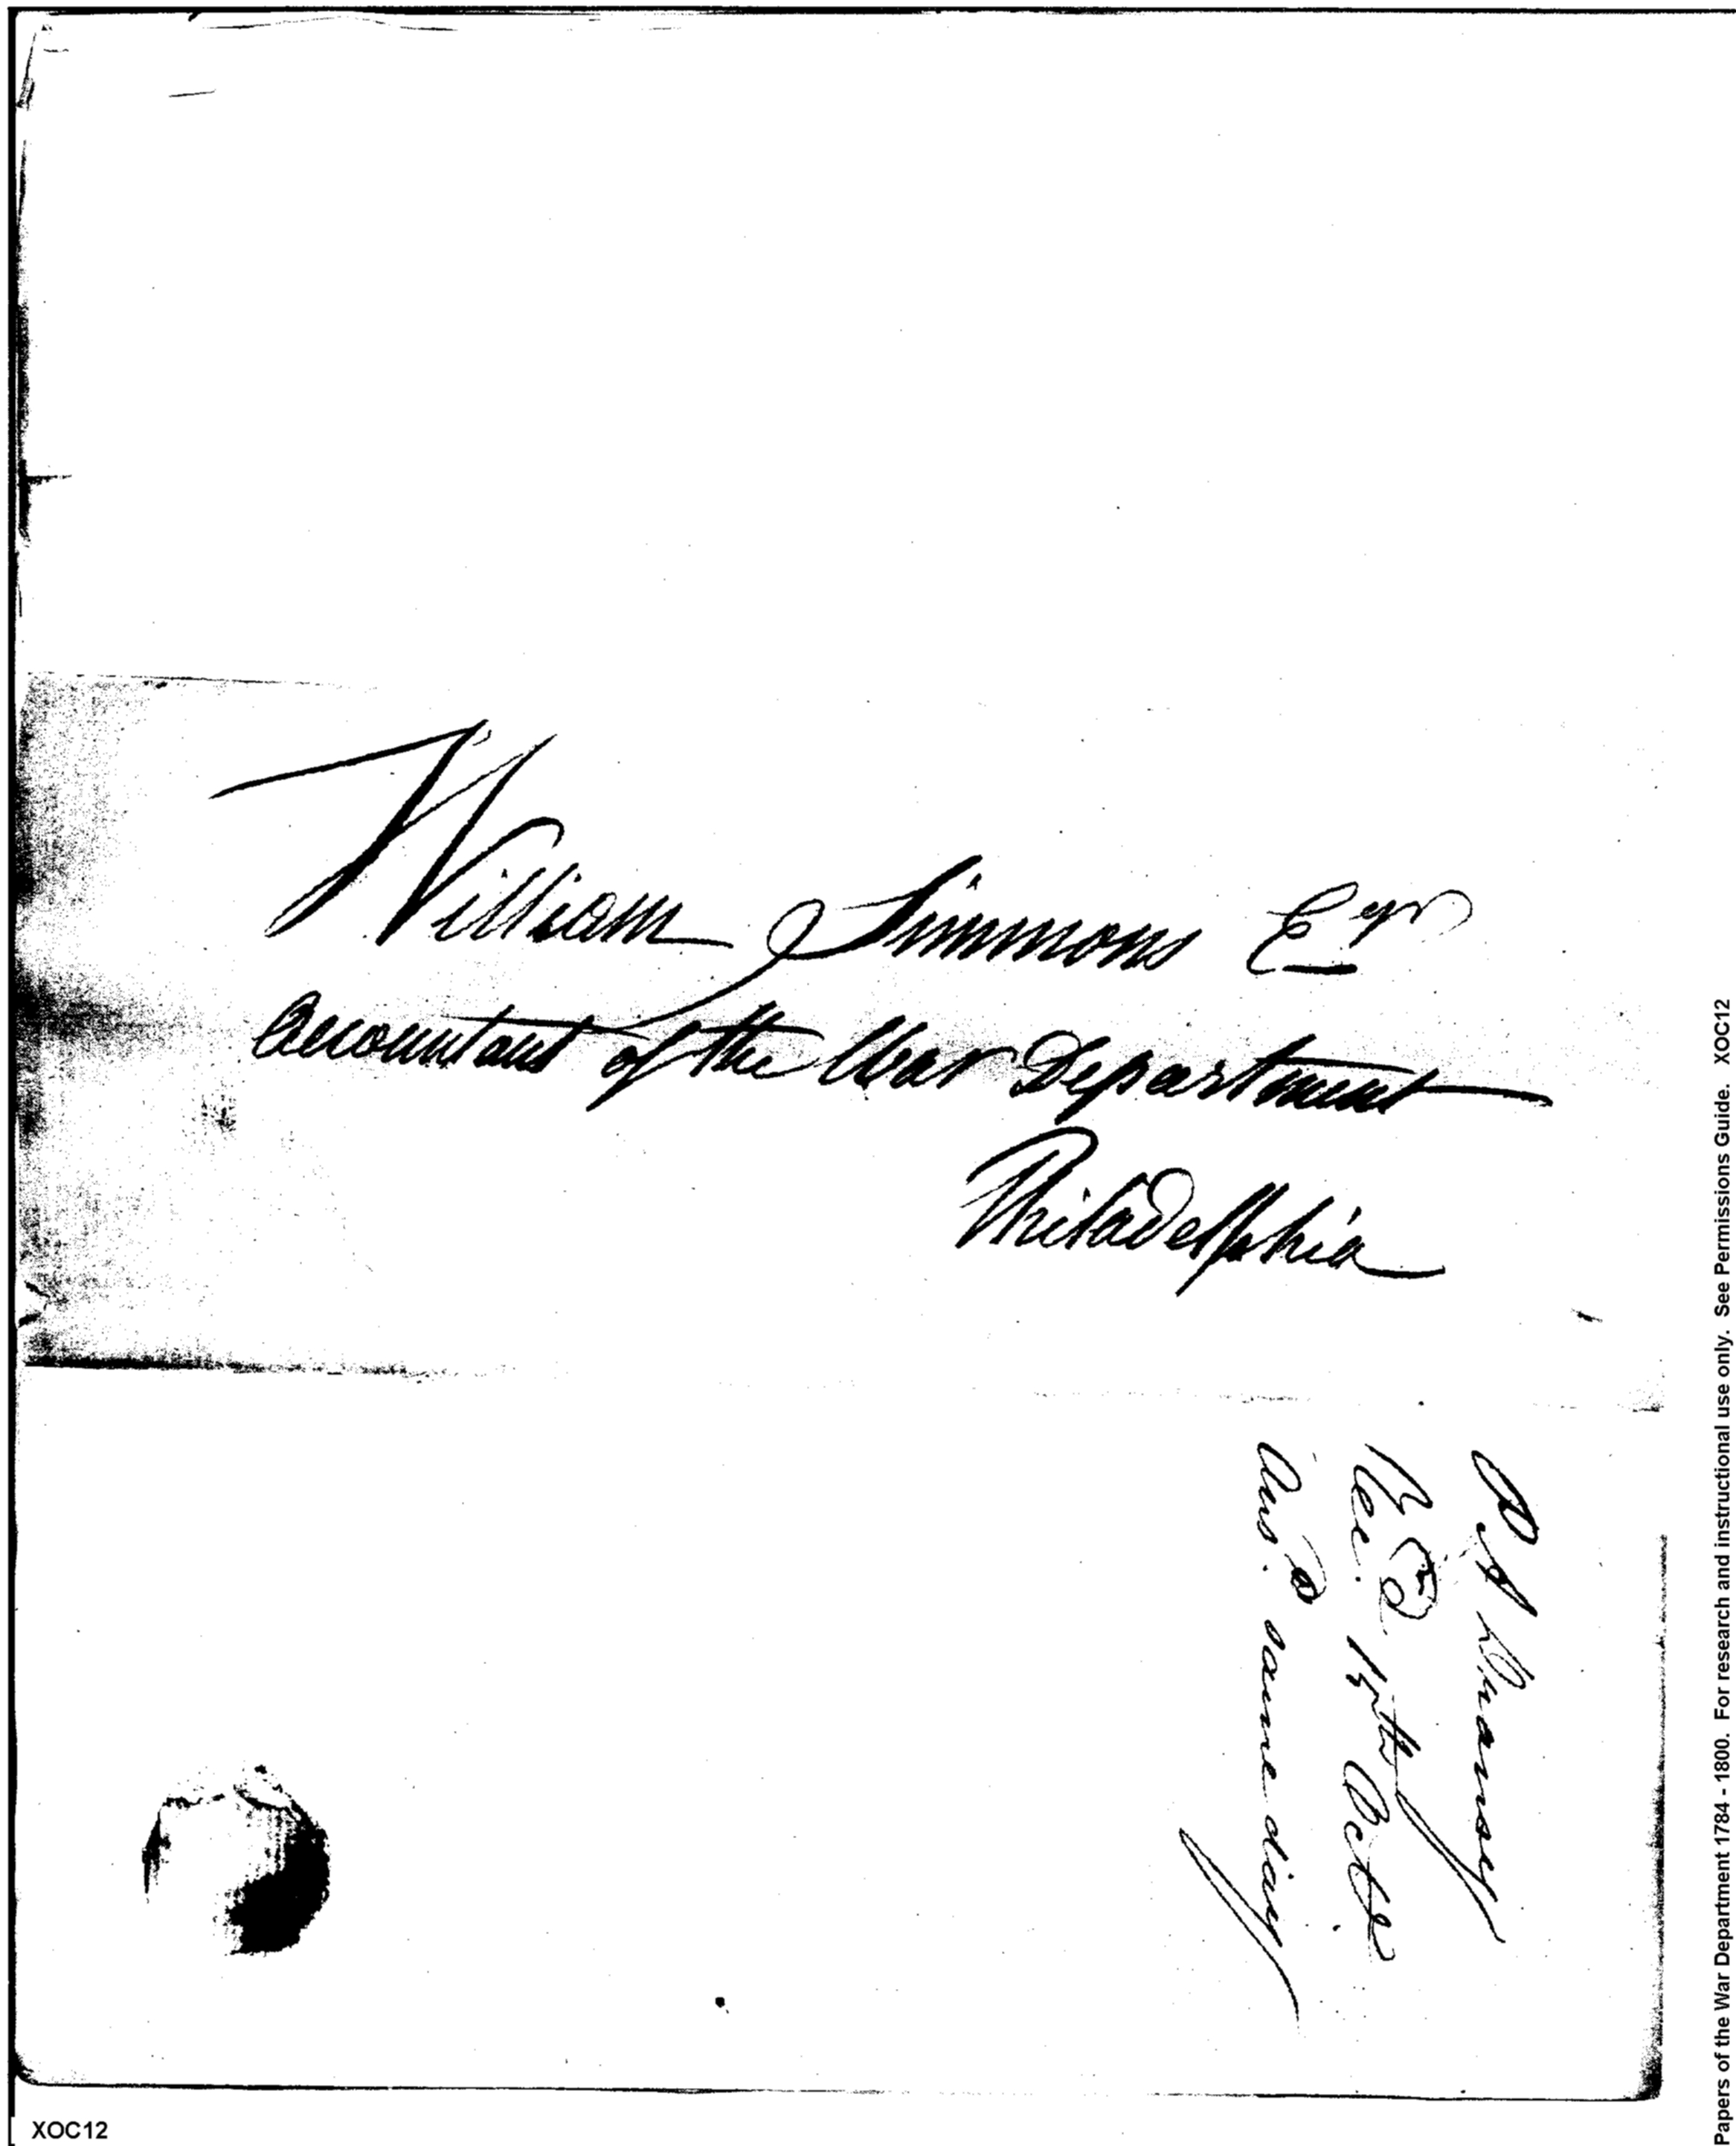 William Simmons Esqr
Accountant of the War Department
Philadelphia
Rec.d 15th Octr
Ans.d same day
Papers of the War Department 1784 - 1800. For research and instructional use only. See Permissions Guide. XOC12
XOC12